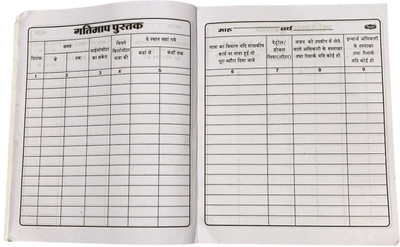 गतिमाप पुस्तक
दिनांक
समय
से
तक
माईलोमीटर
का नम्बर
कितने
किलोमीटर
यात्रा की
वे स्थान जहां गये
कहां से
कहाँ तक
1
2
3
4
5
माह
वर्ष
यात्रा का विवरण यदि शासकीय
कार्य पर यात्रा हुई हो
पूरा ब्यौरा दिया जावे
पेट्रोल/
डीजल
लिया(लीटर)
वाहन को उपयोग में लेने
वाले अधिकारी के हस्ताक्षर
तथा रिमार्क यदि कोई हो
इन्चार्ज अधिकारी
के हस्ताक्षर
तथा रिमार्क
यदि कोई हो
6
7
8
9